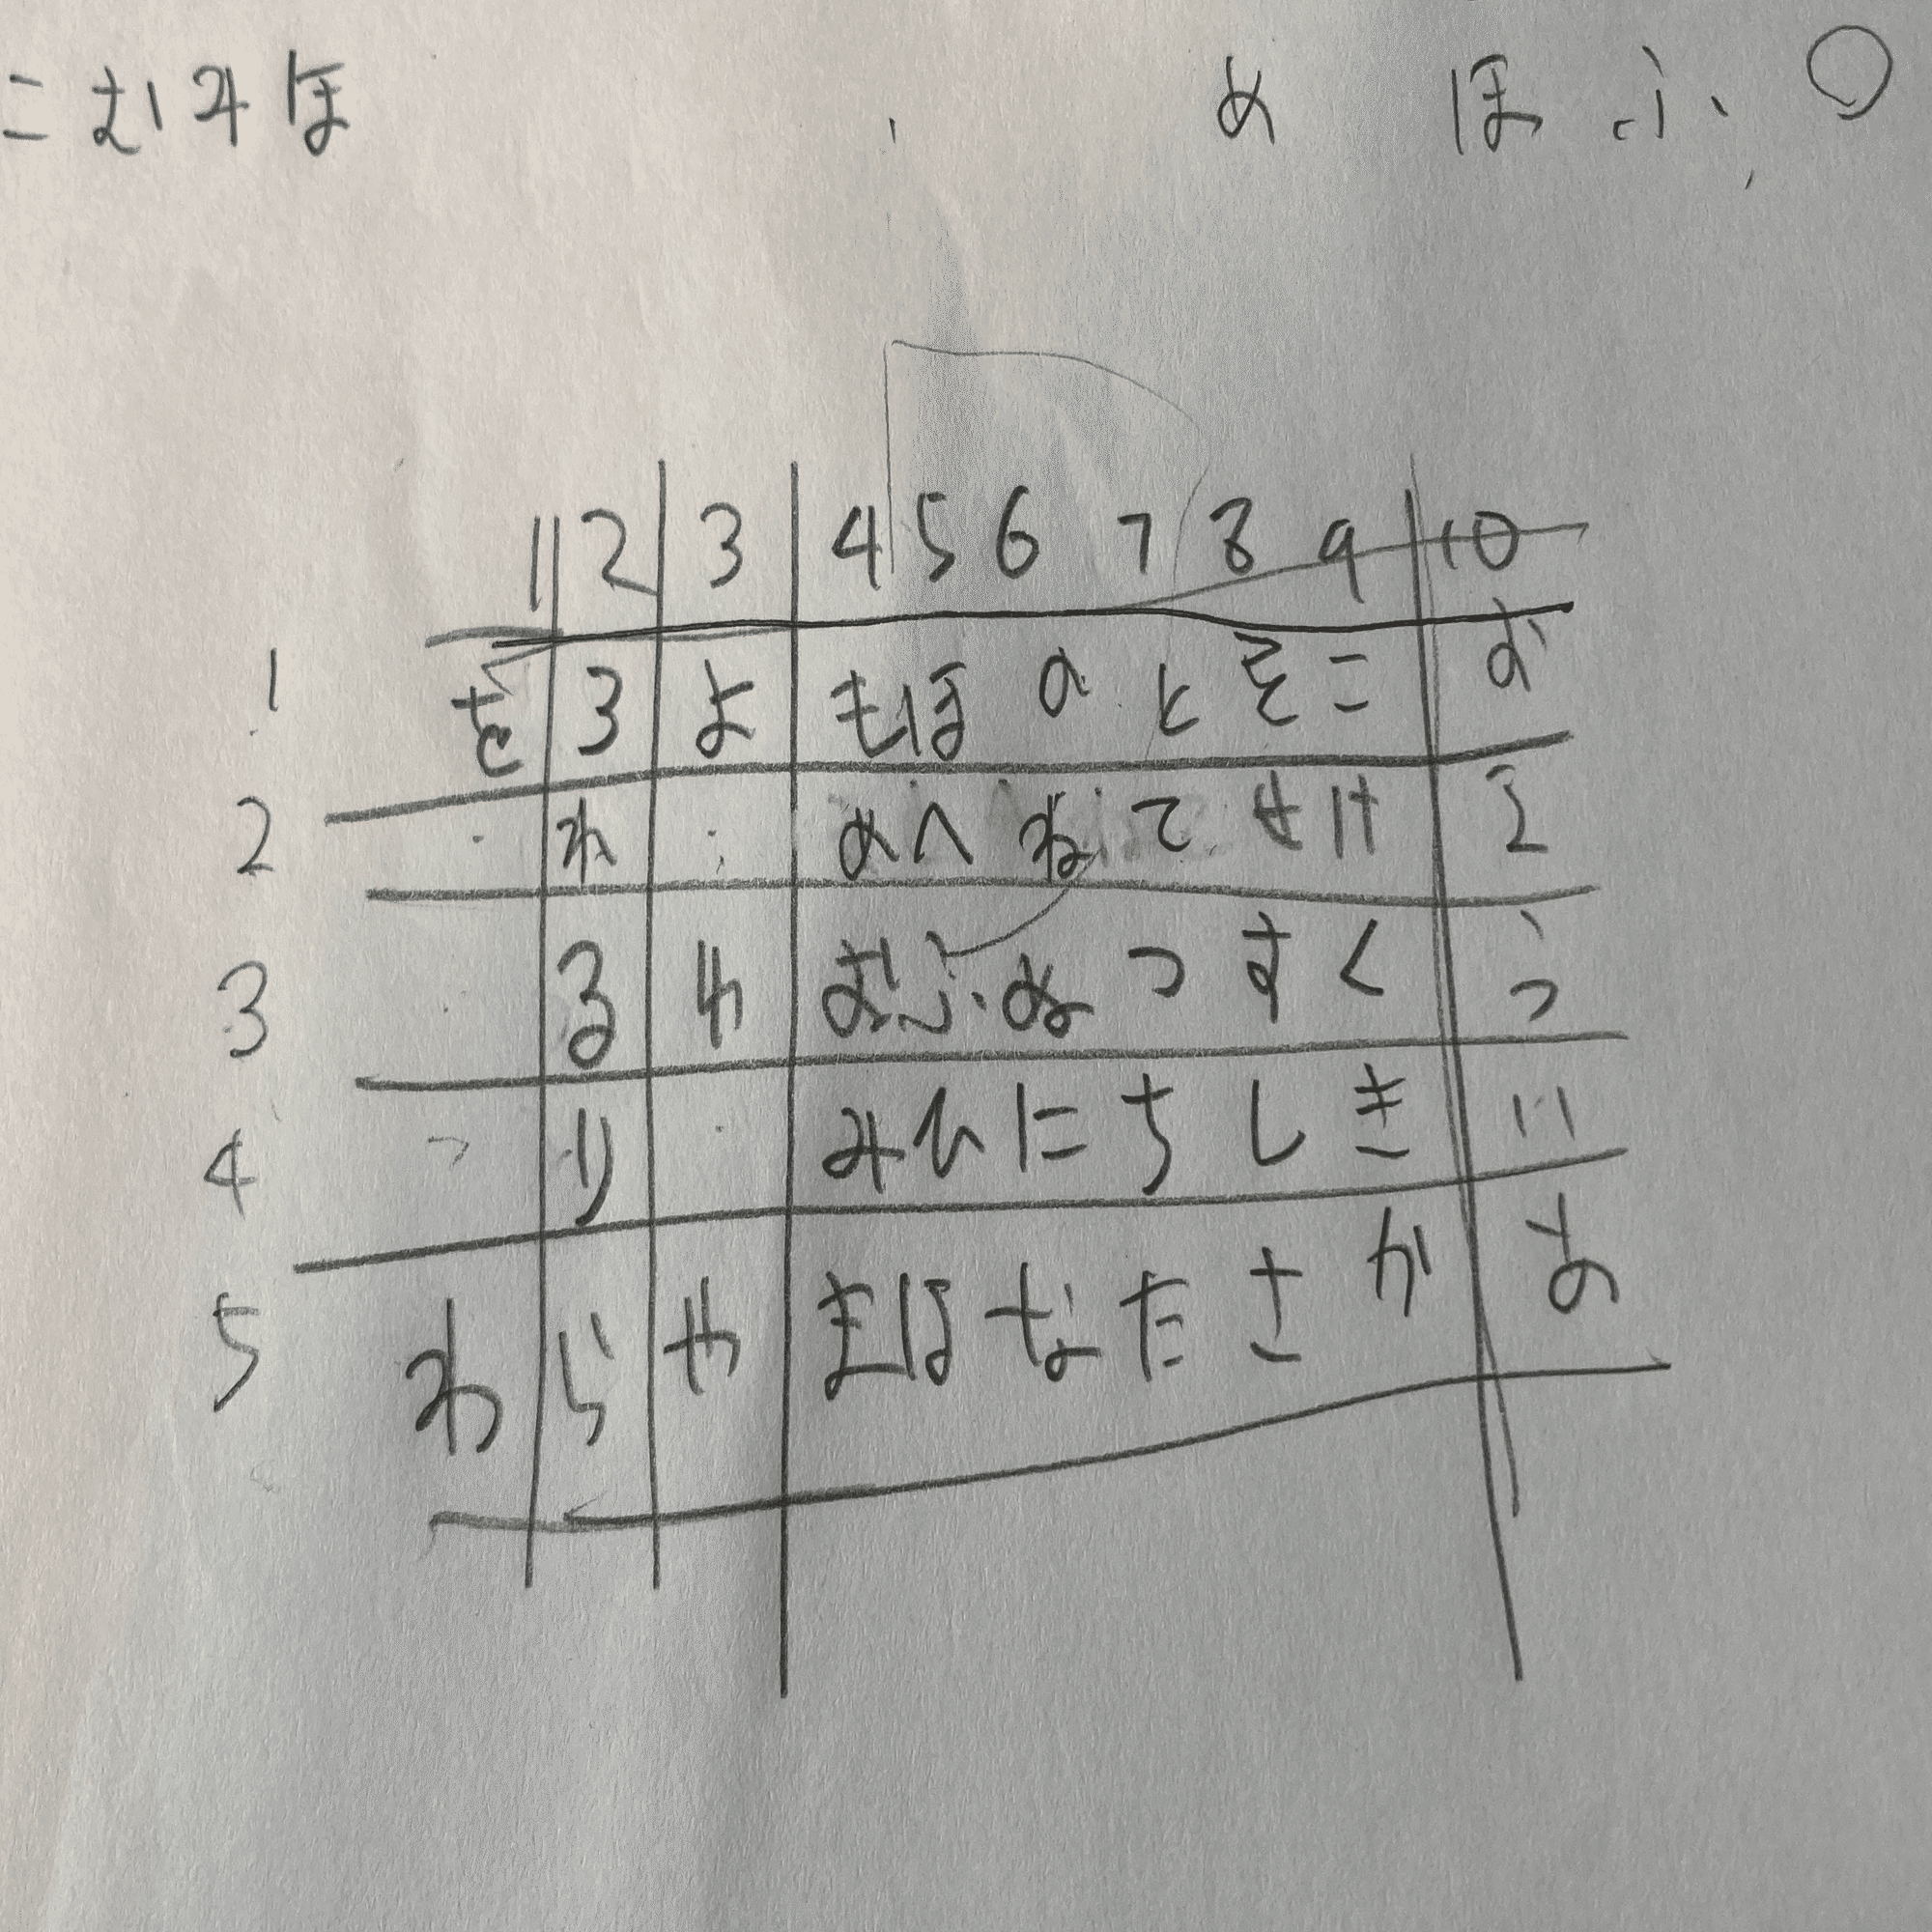 こむみほ め ほ ふ 〇
1 2 3 4 5 6 7 8 9 10
1 を ろ よ も ほ の と そ こ お
2 れ め へ ね て せ け え
3 る ゆ む ふ ぬ つ す く う
4 り み ひ に ち し き い
5 わ ら や ま は な た さ か あ